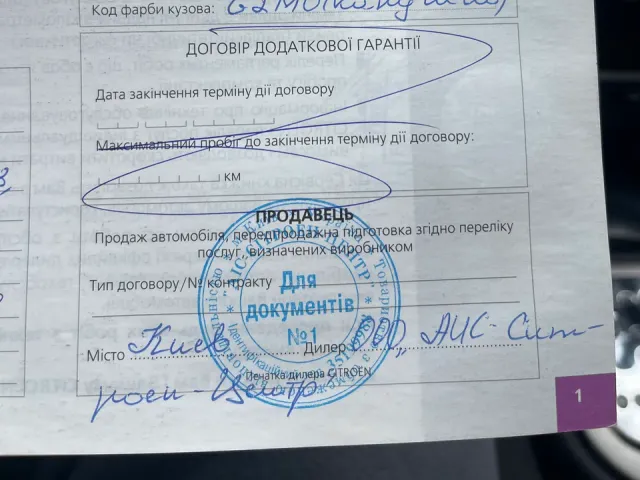 Код фарби кузова:
ДОГОВІР ДОДАТКОВОЇ ГАРАНТІЇ
Дата закінчення терміну дії договору
Максимальний пробіг до закінчення терміну дії договору:
км
ПРОДАВЕЦЬ
Продаж автомобіля, передпродажна підготовка згідно переліку
послуг, визначених виробником
Тип договору/№ контракту
Для
документів
№1
Місто Киев Дилер АИС-Сит-
роен-Центр
Печатка дилера CITROËN
1